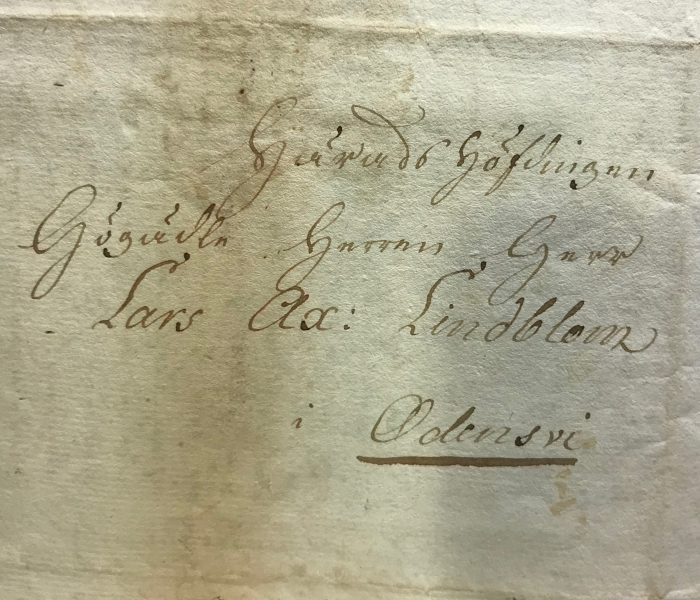 Härads Höfdingen
Högädle Herren Herr
Lars Ax: Lindblom
i Ödensvi